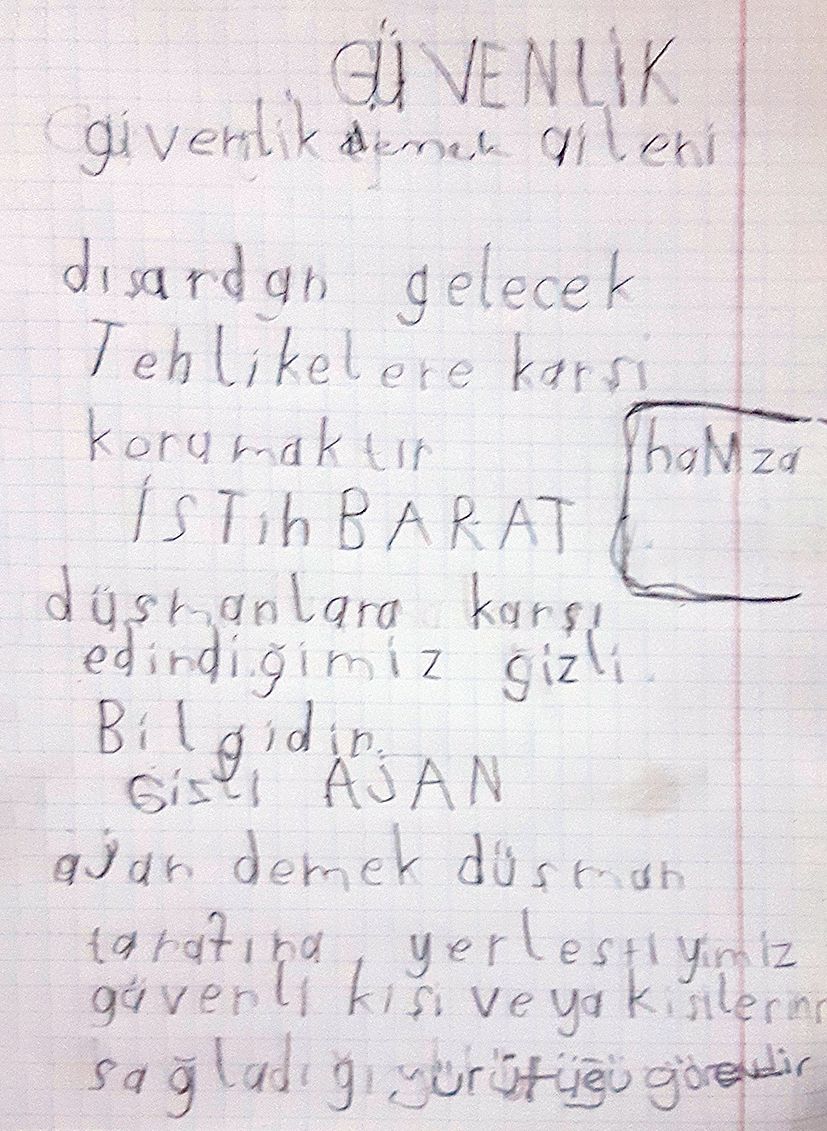 GÜVENLİK
güvenlik demek aileni
dısardan gelecek
Tehlikelere karsi
korumaktır
haMza
İSTihBARAT
düşmanlara karşı
edindiğimiz gizli
Bilgidir.
GİSLİ AJAN
ajan demek düsman
tarafına, yerlestiyimiz
güvenli kisi veya kisilerin
sağladığı yürütüğü görevdir